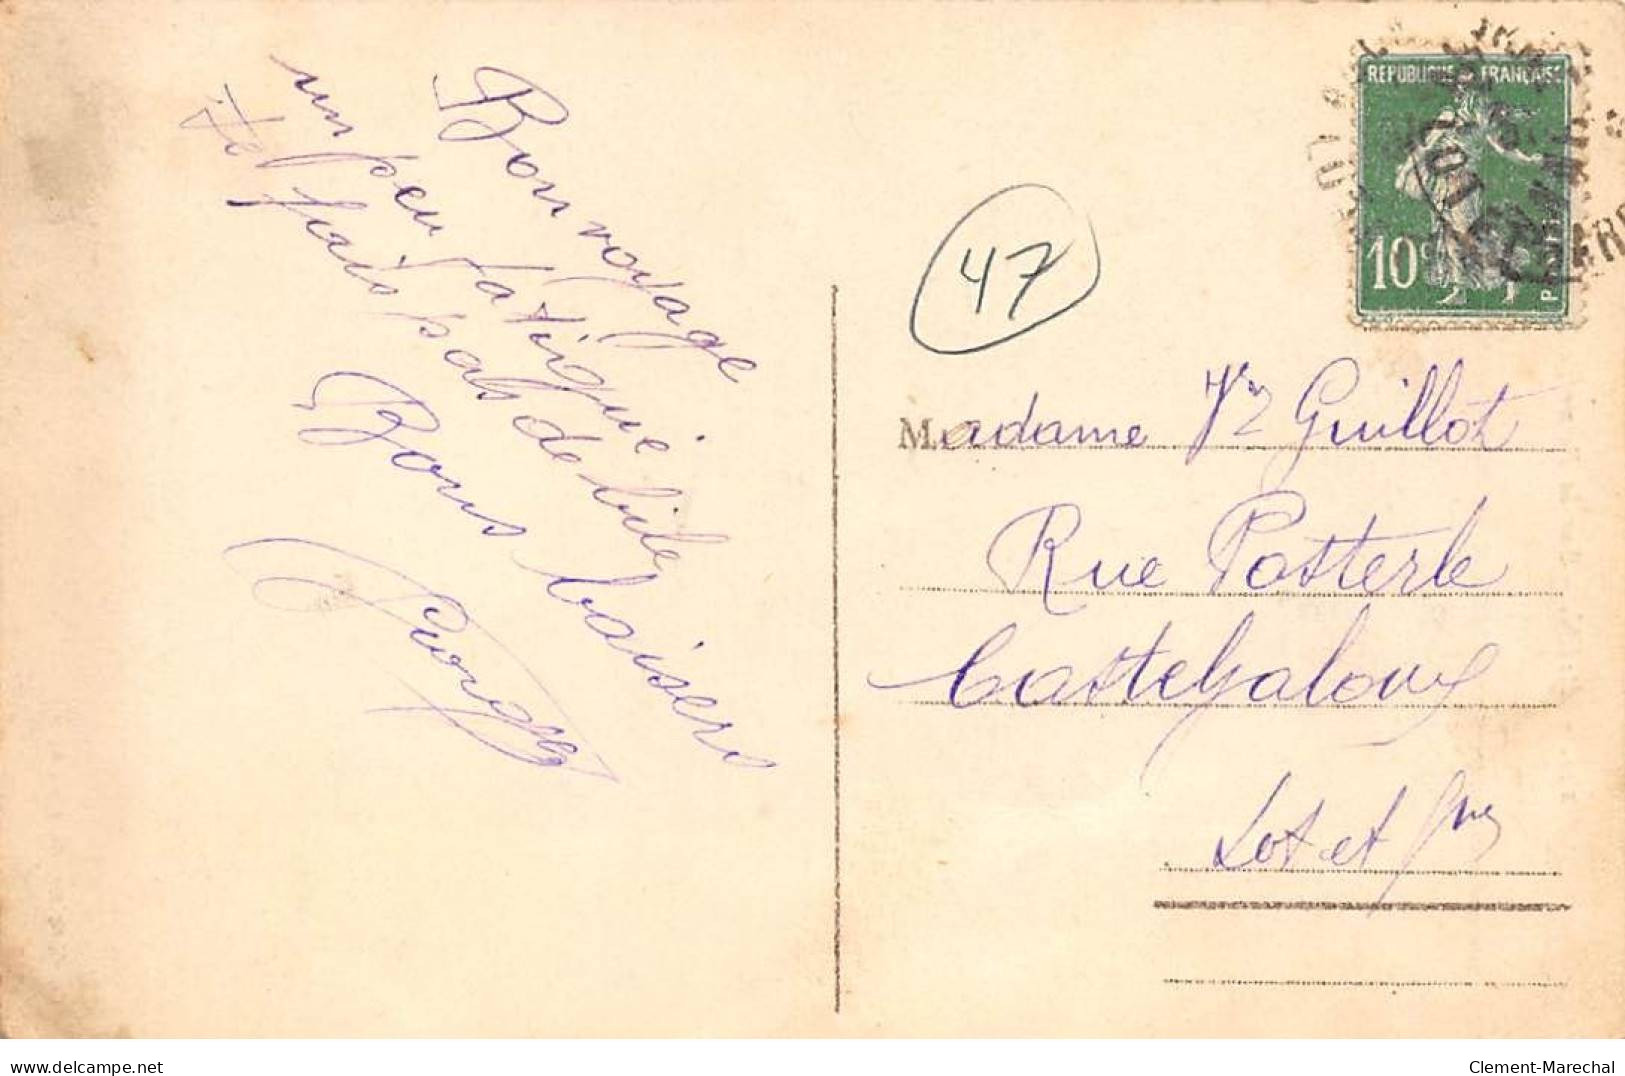 Bon voyage
un peu fatigué
Te fais pas de bile
Bons baisers
Georges
47
REPUBLIQUE FRANÇAISE
10c
Madame Vve Guillot
Rue Posterle
Casteljaloux
Lot et Gne
Clement-Marechal